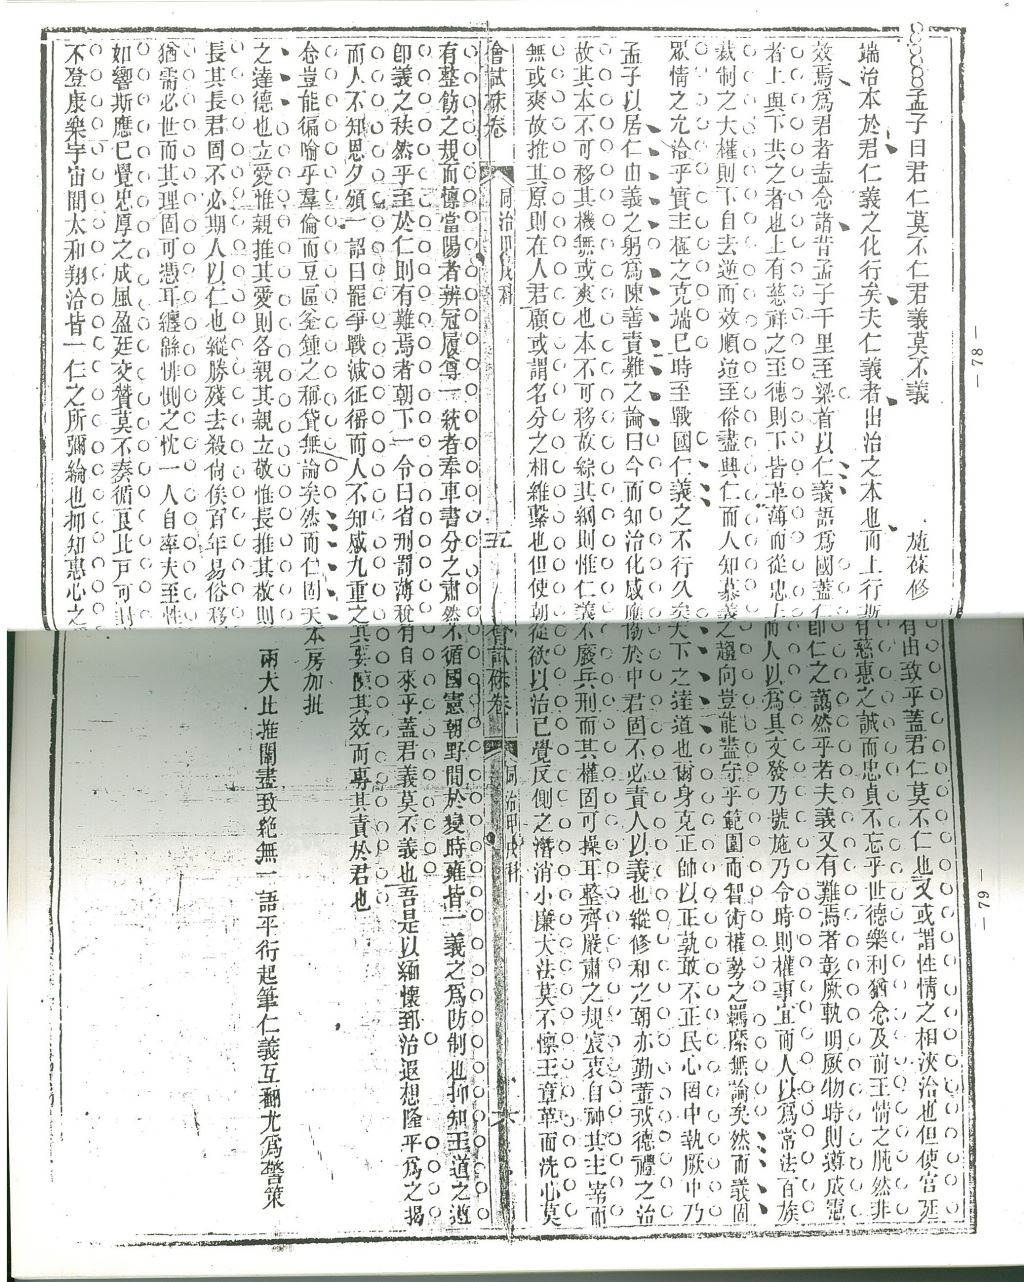 孟子曰君仁莫不仁君義莫不義 施葆修
端治本於君仁義之化行矣夫仁義者出治之本也而上行斯
效焉為君者盍念諸昔孟子千里至梁首以仁義語為國蓋仁
者上與下共之者也上有慈祥之至德則下皆革薄而從忠上
裁制之大權則下自去逆而效順迨至俗盡興仁而人知慕義
眾情之允洽乎實主極之克端已時至戰國仁義之不行久矣
孟子以居仁由義之躬為陳善責難之論曰今而知治化感應
故其本不可移其機無或爽也本不可移故綜其綱則惟仁義
無或爽故推其原則在人君願或謂名分之相維繫也但使朝
會試硃卷 同治甲戌科 五
有整飭之規而懍當陽者辨冠履尊一統者奉車書分之肅然
即義之秩然乎至於仁則有難焉者朝下一令曰省刑罰薄稅
而人不知恩夕頒一詔曰罷爭戰減征徭而人不知感九重之
念豈能徧喻乎羣倫而豆區釜鍾之稱貸無論矣然而仁固天
之達德也立愛惟親推其愛則各親其親立敬惟長推其敬則
長其長君固不必期人以仁也縱勝殘去殺尚俟百年易俗移
猶需必世而其理固可憑耳纏緜悱惻之忱一人自率夫至性
如響斯應已覺忠厚之成風盈廷交贊莫不奏循良比戶可封
不登康樂宇宙間太和翔洽皆一仁之所彌綸也抑知惠心之
— 78 —
有由致乎蓋君仁莫不仁也又或謂性情之相浹洽也但使官廷
有慈惠之誠而忠貞不忘乎世德樂利猶念及前王情之肫然非
即仁之藹然乎若夫義又有難焉者彰厥軌明厥物時則遵成憲
而人以為具文發乃號施乃令時則權事宜而人以為常法百族
之趨向豈能盡守乎範圍而智術權勢之羈縻無論矣然而義固
天下之達道也爾身克正帥以正孰敢不正民心罔中執厥中乃
協於中君固不必責人以義也縱修和之朝亦勤董戒德禮之治
不廢兵刑而其權固可操耳整齊嚴肅之規宸衷自神其主宰而
從欲以治已覺反側之潛消小廉大法莫不懍王章革面洗心莫
會試硃卷 同治甲戌科 六
不循國憲朝野間於變時雍皆一義之為防制也抑知王道之遵
有自來乎蓋君義莫不義也吾是以緬懷郅治遐想隆平為之揭
其要陳其效而專其責於君也
本房加批
兩大比推闡盡致絕無一語平衍起筆仁義互翻尤為警策
— 79 —